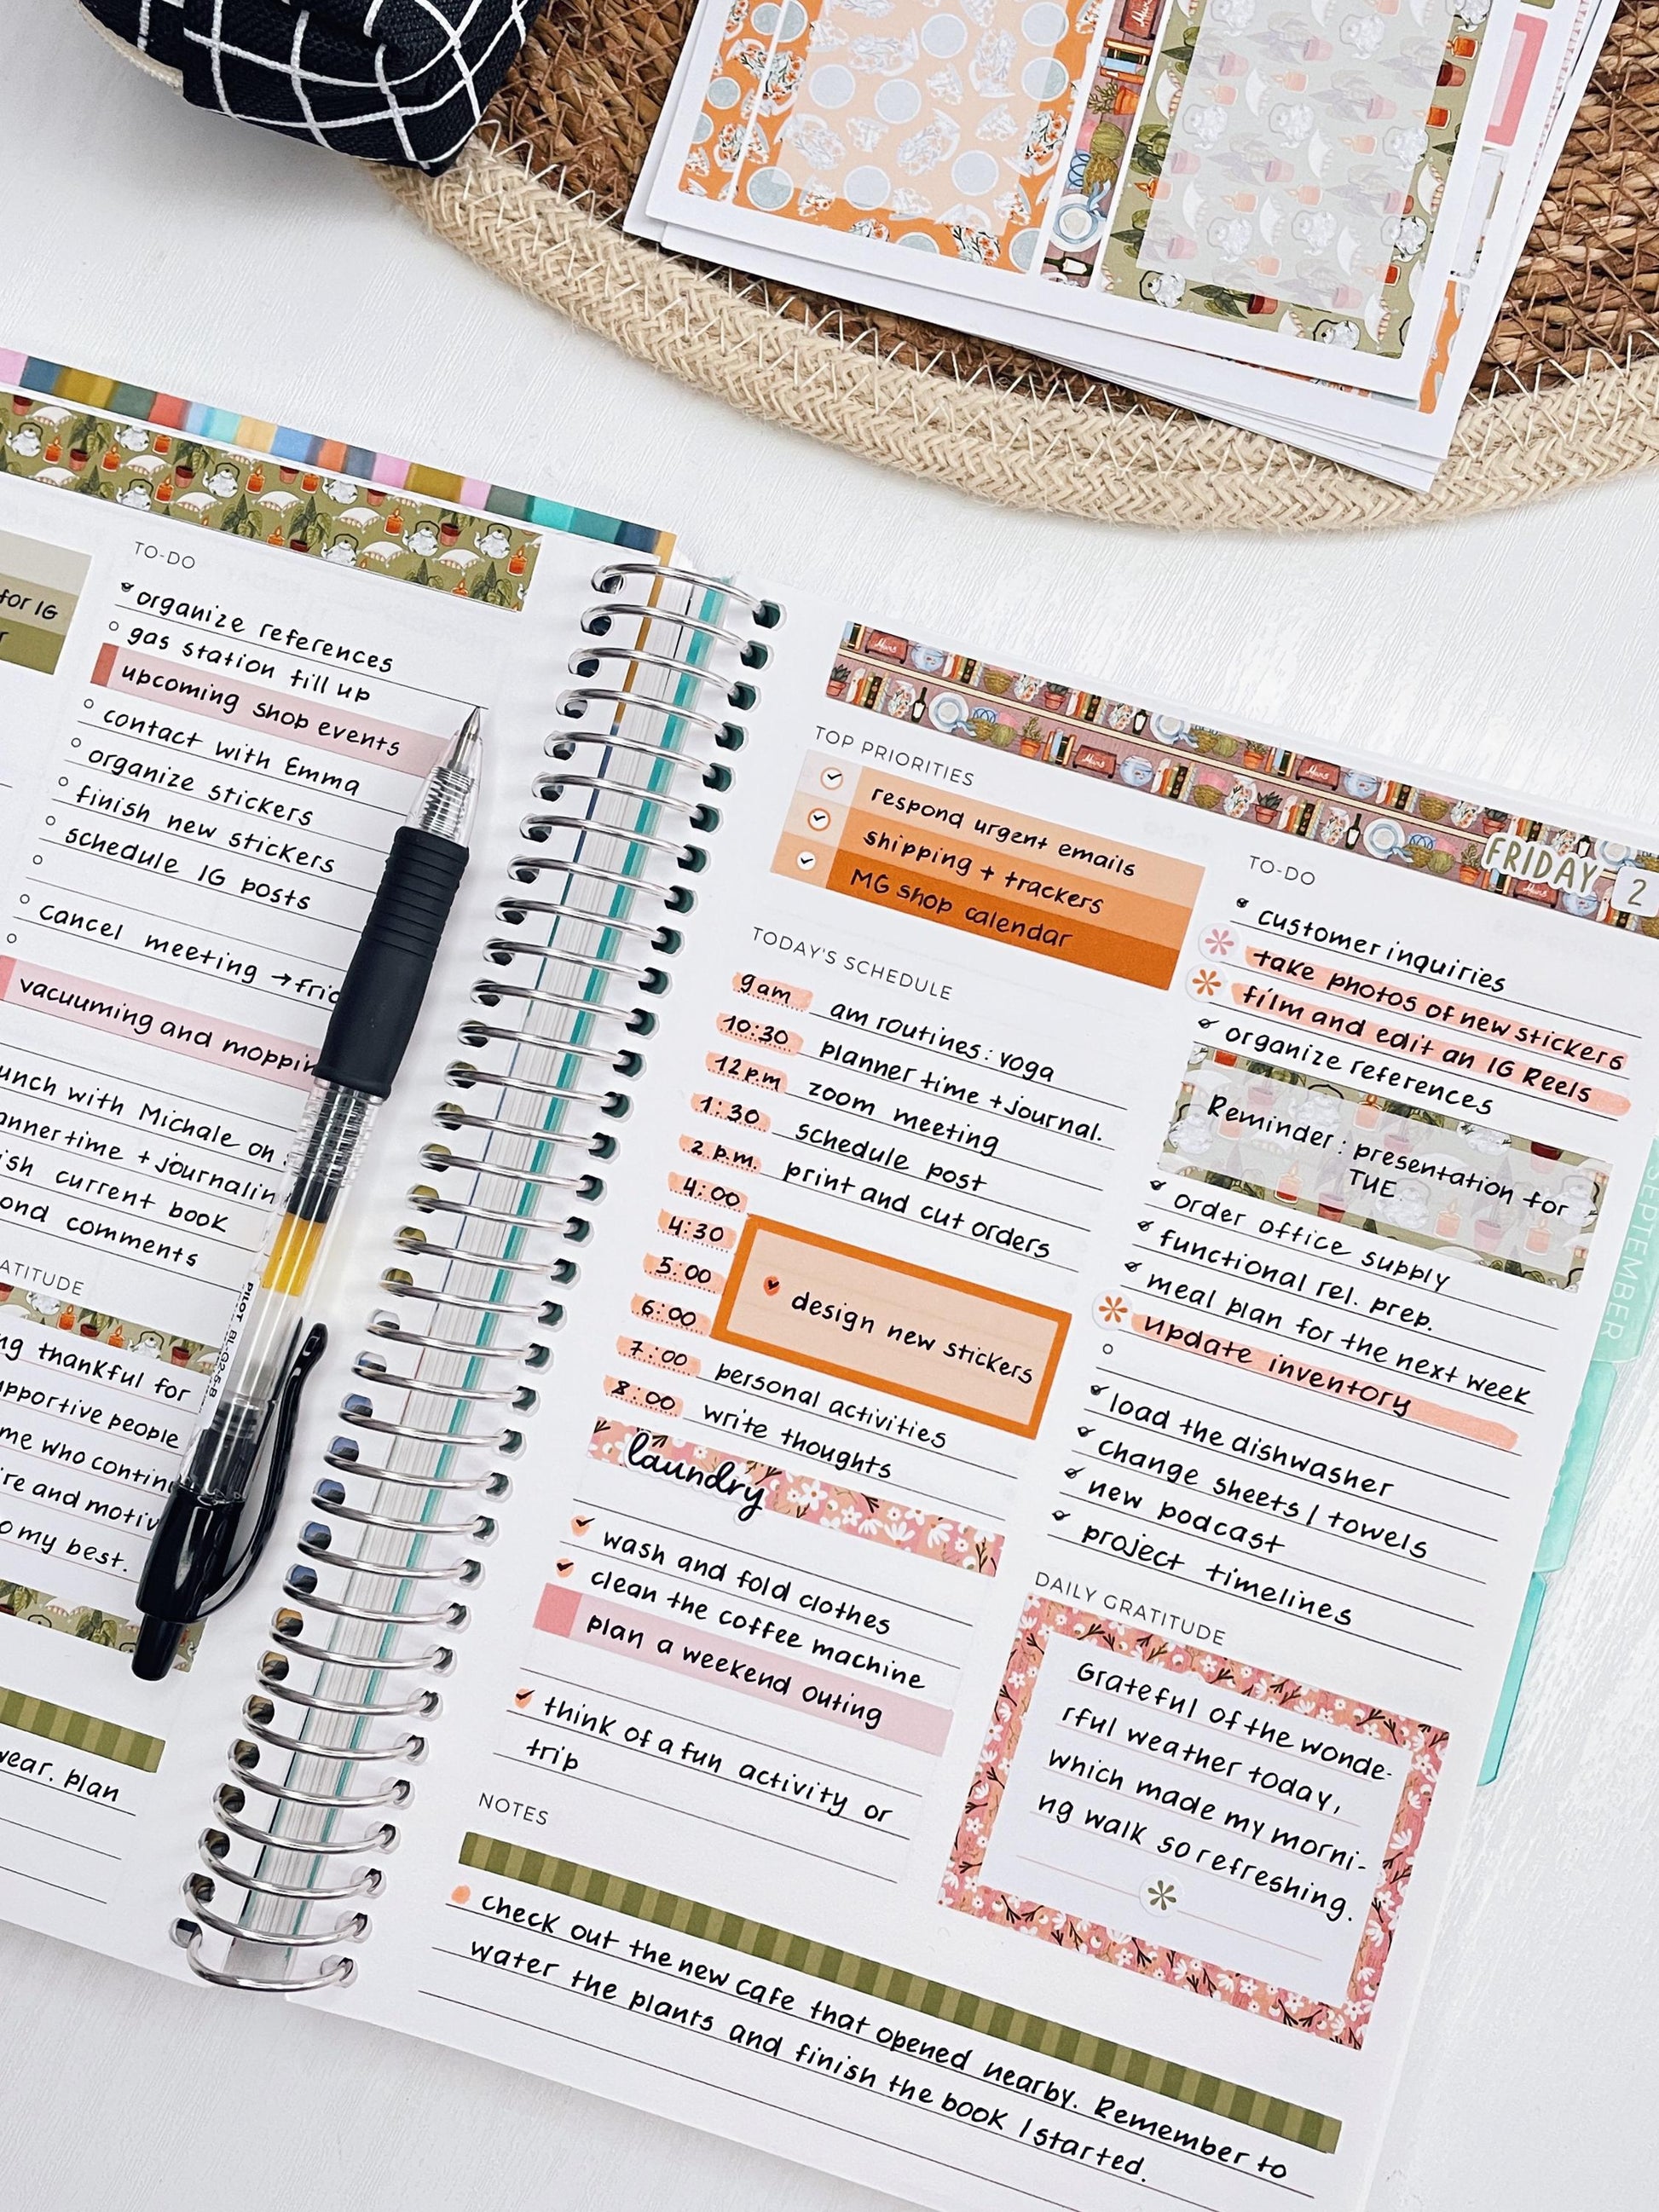 for IG
TO-DO
organize references
gas station fill up
upcoming shop events
contact with Emma
organize stickers
finish new stickers
schedule IG posts
cancel meeting →
vacuuming and
with Michale on
+journalin
current book
comments
thankful for
people
me who
and
o my best.
plan
PILOT BL-G2-5-B
FRIDAY 2
TOP PRIORITIES
respond urgent emails
shipping + trackers
MG shop calendar
TODAY'S SCHEDULE
9am am routines: yoga
10:30 planner time +journal.
12p.m zoom meeting
1:30 schedule post
2 p.m. print and cut orders
4:00
4:30
5:00 design new stickers
6:00
7:00 personal activities
8:00 write thoughts
laundry
wash and fold clothes
clean the coffee machine
plan a weekend outing
think of a fun activity or
trip
TO-DO
customer inquiries
take photos of new stickers
film and edit an IG Reels
organize references
Reminder: presentation for
TUE
order office supply
functional rel. prep.
meal plan for the next week
update inventory
load the dishwasher
change sheets / towels
new podcast
project timelines
DAILY GRATITUDE
Grateful of the wonde-
rful weather today,
which made my morni-
ng walk so refreshing.
NOTES
check out the new cafe that opened nearby. Remember to
water the plants and finish the book I started.
SEPTEMBER